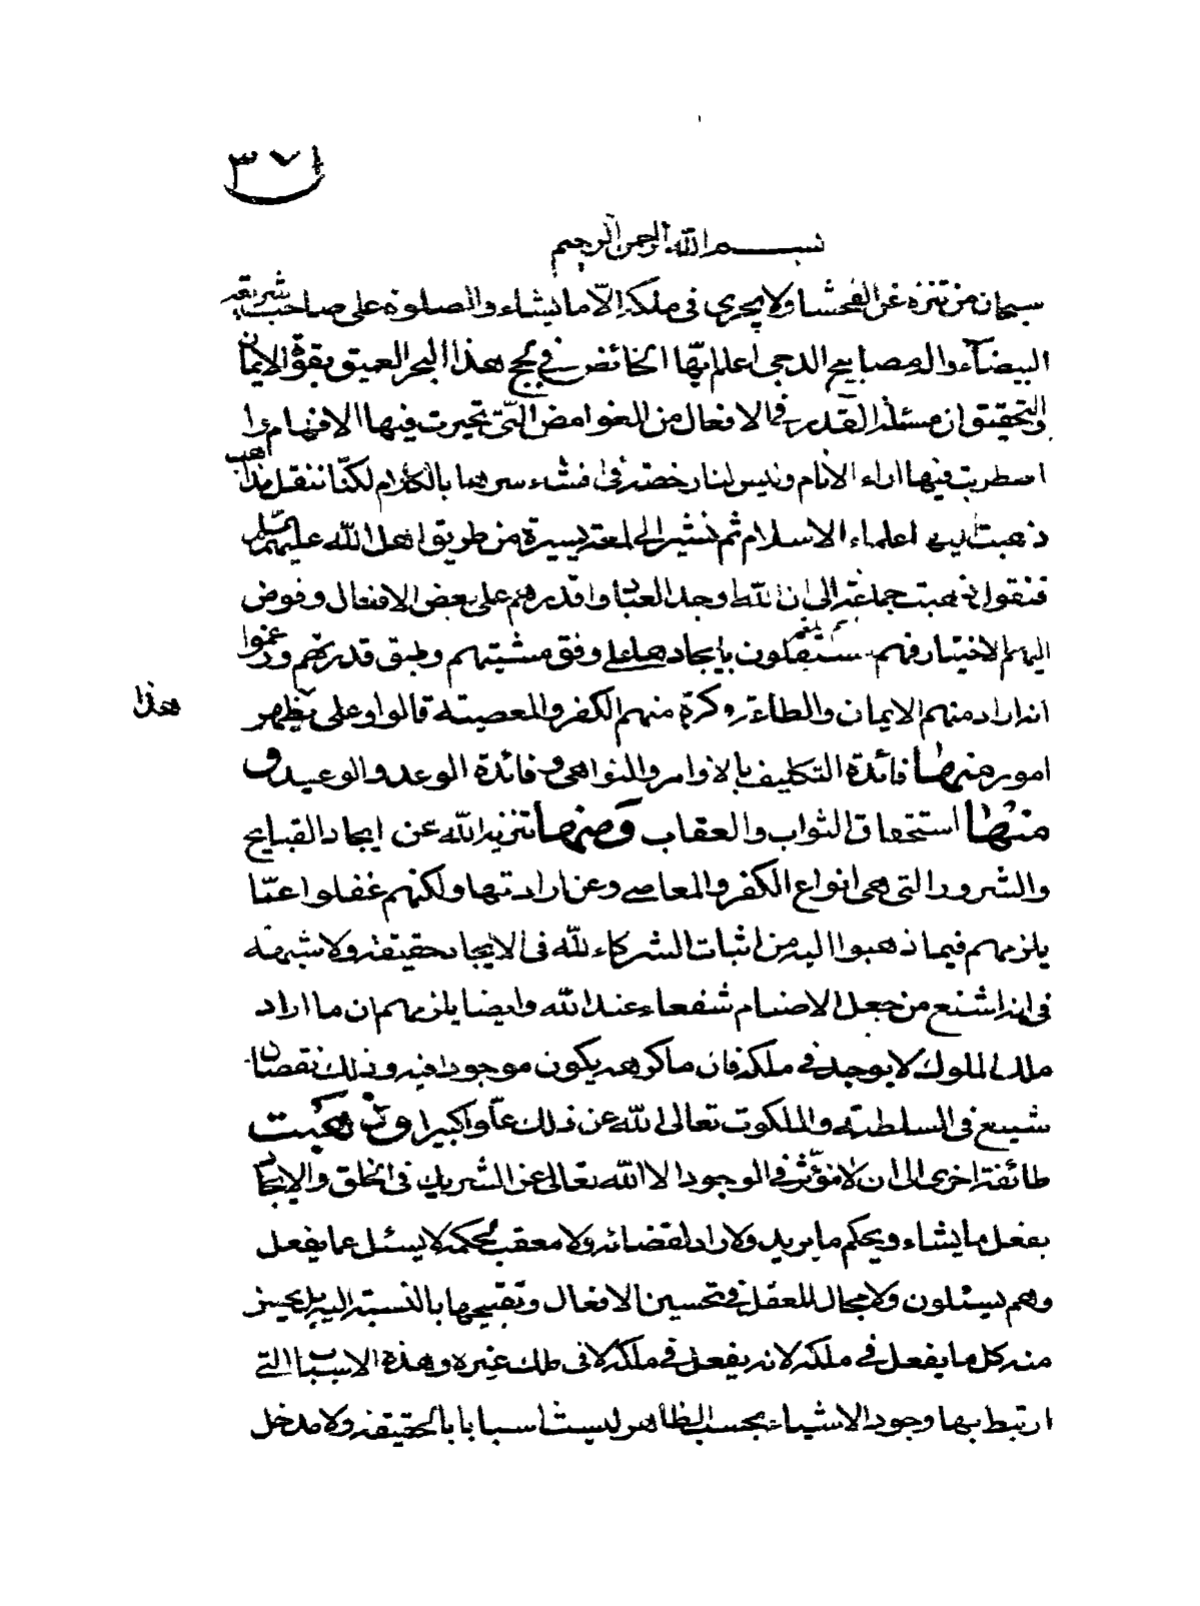 ٣٧١
بسم الله الرحمن الرحيم
سبحان من تنزه عن الفحشا ولا يجرى فى ملكه الّا ما يشاء والصلوة على صاحب شريعة
البيضآء وال مصابيح الدجى اعلم ايّها الخائض فى لجج هذا البحر العميق بقوة الايمان
والتحقيق ان مسئلة القدر فى الافعال من الغوامض التّى تحيرت فيها الافهام وا
اضطربت فيها اراء الانام وليس لنا رخصة فى فشاء سرها بالكلام لكنّا ننقل مذاهب
ذهبت اليها علماء الاسلام ثم نشير الى لمعة يسيرة من طريق اهل الله عليهم
فنقول ذهبت جماعة الى ان الله اوجد العباد واقدرهم على بعض الافعال وفوض
اليهم الاختيار فهم مستقلون بايجادها على وفق مشيتهم وطبق قدرتهم وزعموا
انه اراد منهم الايمان والطاعة وكره منهم الكفر والمعصية قالوا وعلى يظهر
هذا
امور منها فائدة التكليف بالاوامر والنواهى وفائدة الوعد والوعيد و
منها استحقاق الثواب والعقاب ومنها تنزيه الله عن ايجاد القبايح
والشرور التى هى انواع الكفر والمعاصى وعن ارادتها ولكنهم غفلوا عمّا
يلزمهم فيما ذهبوا اليه من اثبات الشركاء لله فى الايجاد حقيقة ولا شبهة
فى انه اشنع من جعل الاصنام شفعاء عند الله وايضا يلزمهم ان ما اراد
ملك الملوك لا يوجد فى ملكه فان ما كرهه يكون موجودا فيه وذلك نقصان
شنيع فى السلطنة والملكوت تعالى الله عن ذلك علّوا كبيرا وذهبت
طائفة اخرى الى ان لا مؤثّر فى الوجود الا الله تعالى عن الشريك فى الخلق والايجاد
يفعل ما يشاء ويحكم ما يريد ولا راد لقضائه ولا معقب لحكمه لا يسئل عما يفعل
وهم يسئلون ولا مجال للعقل فى تحسين الافعال وتقبيحها بالنسبة اليه بل يحسن
منه كل ما يفعل فى ملكه لانه يفعل فى ملكه لا فى ملك غيره وهذه الاسباب التى
ارتبط بها وجود الاشياء بحسب الظاهر ليست اسبابا بالحقيقة ولا مدخل